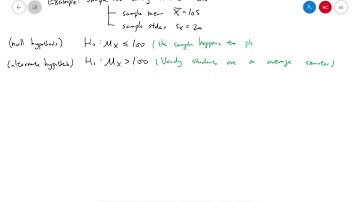 sample mean x̄ = 105
sample stdev sₓ = 20
(null hypothesis) H₀ : μₓ ≤ 100 (the sample happens to
(alternate hypothesis) H₁ : μₓ > 100 (Vandy students are on average smarter)